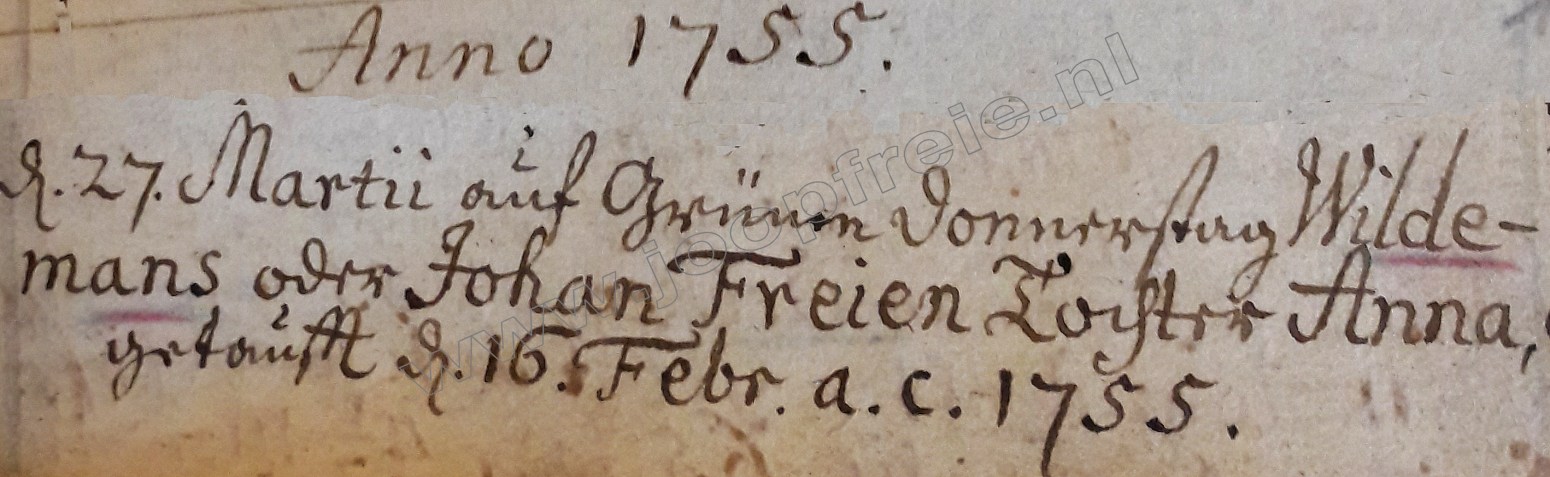 Anno 1755.
d. 27. Martii auf Grünen Donnerstag Wilde-
mans oder Johan Freien Tochter Anna,
getaufft d. 16. Febr. a. c. 1755.
www.joopfreie.nl